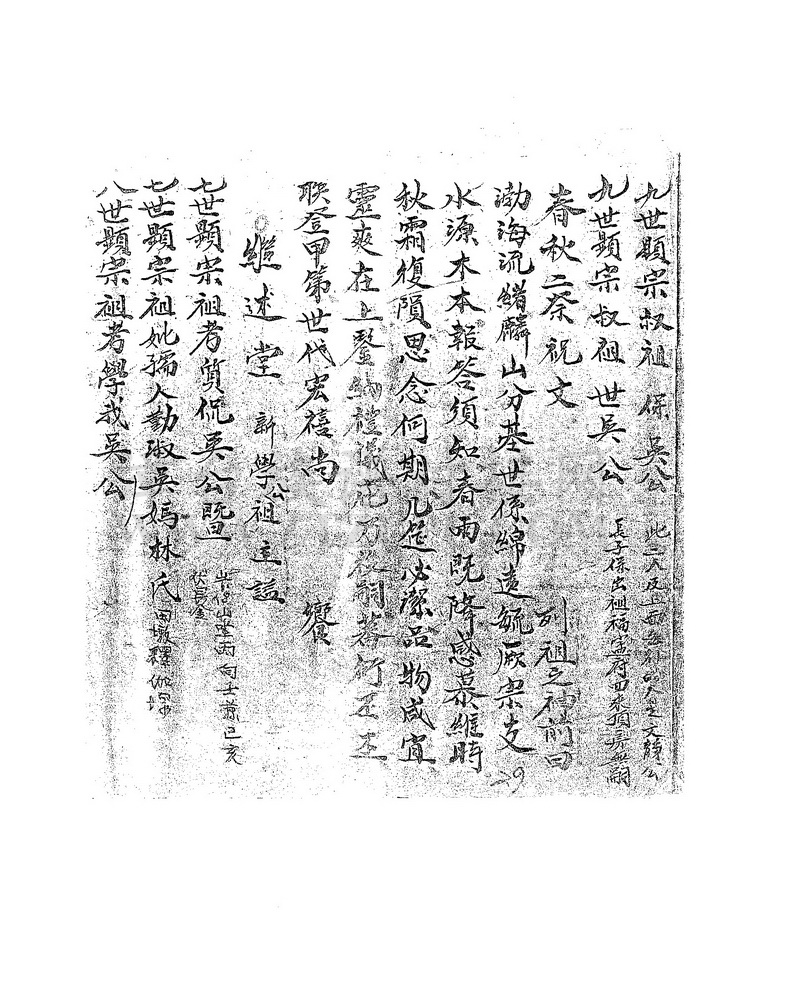 九世顯宗叔祖 保 吳公 此二人及上
文韓公
九世顯宗叔祖 世吳公 長子係出祖 無嗣
春秋二祭祝文 列祖之神前曰
渤海流緒麟山分基世係綿遠毓厥宗支
水源木本報答須知春雨既降感慕維時
秋霜復隕思念何期几筵必潔品物咸宜
靈爽在上鑒納禮儀 嗣蕃衍丕丕
聯登甲第世代宏禧尚 饗
繼述堂 新學公祖主謚
七世顯宗祖考質侃吳公暨 坐丙向士兼已亥
七世顯宗祖妣孺人勤淑吳媽林氏
八世顯宗祖考學我吳公
29